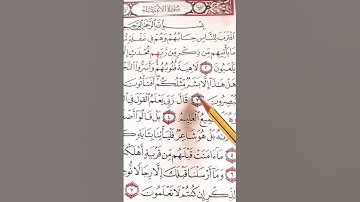 سُورَةُ الْأَنْبِيَاءِ
بِسْمِ اللَّهِ الرَّحْمَٰنِ الرَّحِيمِ
اقْتَرَبَ لِلنَّاسِ حِسَابُهُمْ وَهُمْ فِي غَفْلَةٍ
مَا يَأْتِيهِم مِّن ذِكْرٍ مِّن رَّبِّهِم مُّحْدَثٍ
يَلْعَبُونَ ٢ لَاهِيَةً قُلُوبُهُمْ وَأَسَرُّوا
هَلْ هَٰذَا إِلَّا بَشَرٌ مِّثْلُكُمْ أَفَتَأْتُونَ
تُبْصِرُونَ ٣ قَالَ رَبِّي يَعْلَمُ الْقَوْلَ فِي
السَّمِيعُ الْعَلِيمُ ٤ بَلْ قَالُوا
بَلْ هُوَ شَاعِرٌ فَلْيَأْتِنَا بِآيَةٍ
مَا ءَامَنَتْ قَبْلَهُم مِّن قَرْيَةٍ
وَمَا أَرْسَلْنَا قَبْلَكَ إِلَّا رِجَالًا
الذِّكْرِ إِن كُنتُمْ لَا تَعْلَمُونَ ٧